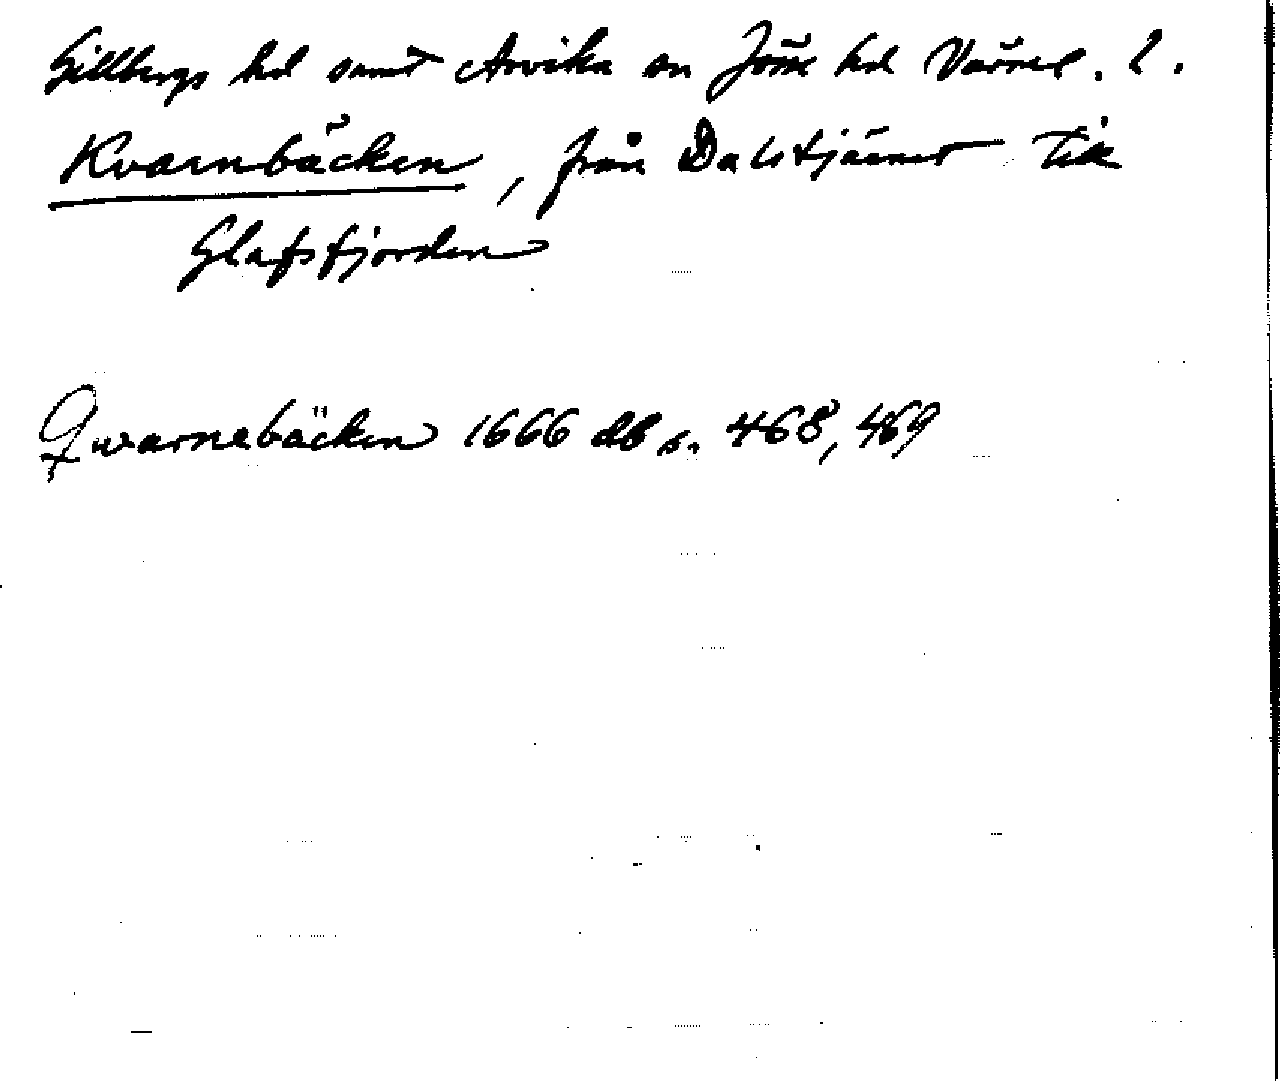 Gillbergs hd samt Arvika sn Jösse hd Värml. l.
Kvarnbäcken, från Dalstjärnet till
Glafsfjorden
Qwarnebäcken 1666 db s. 468, 469